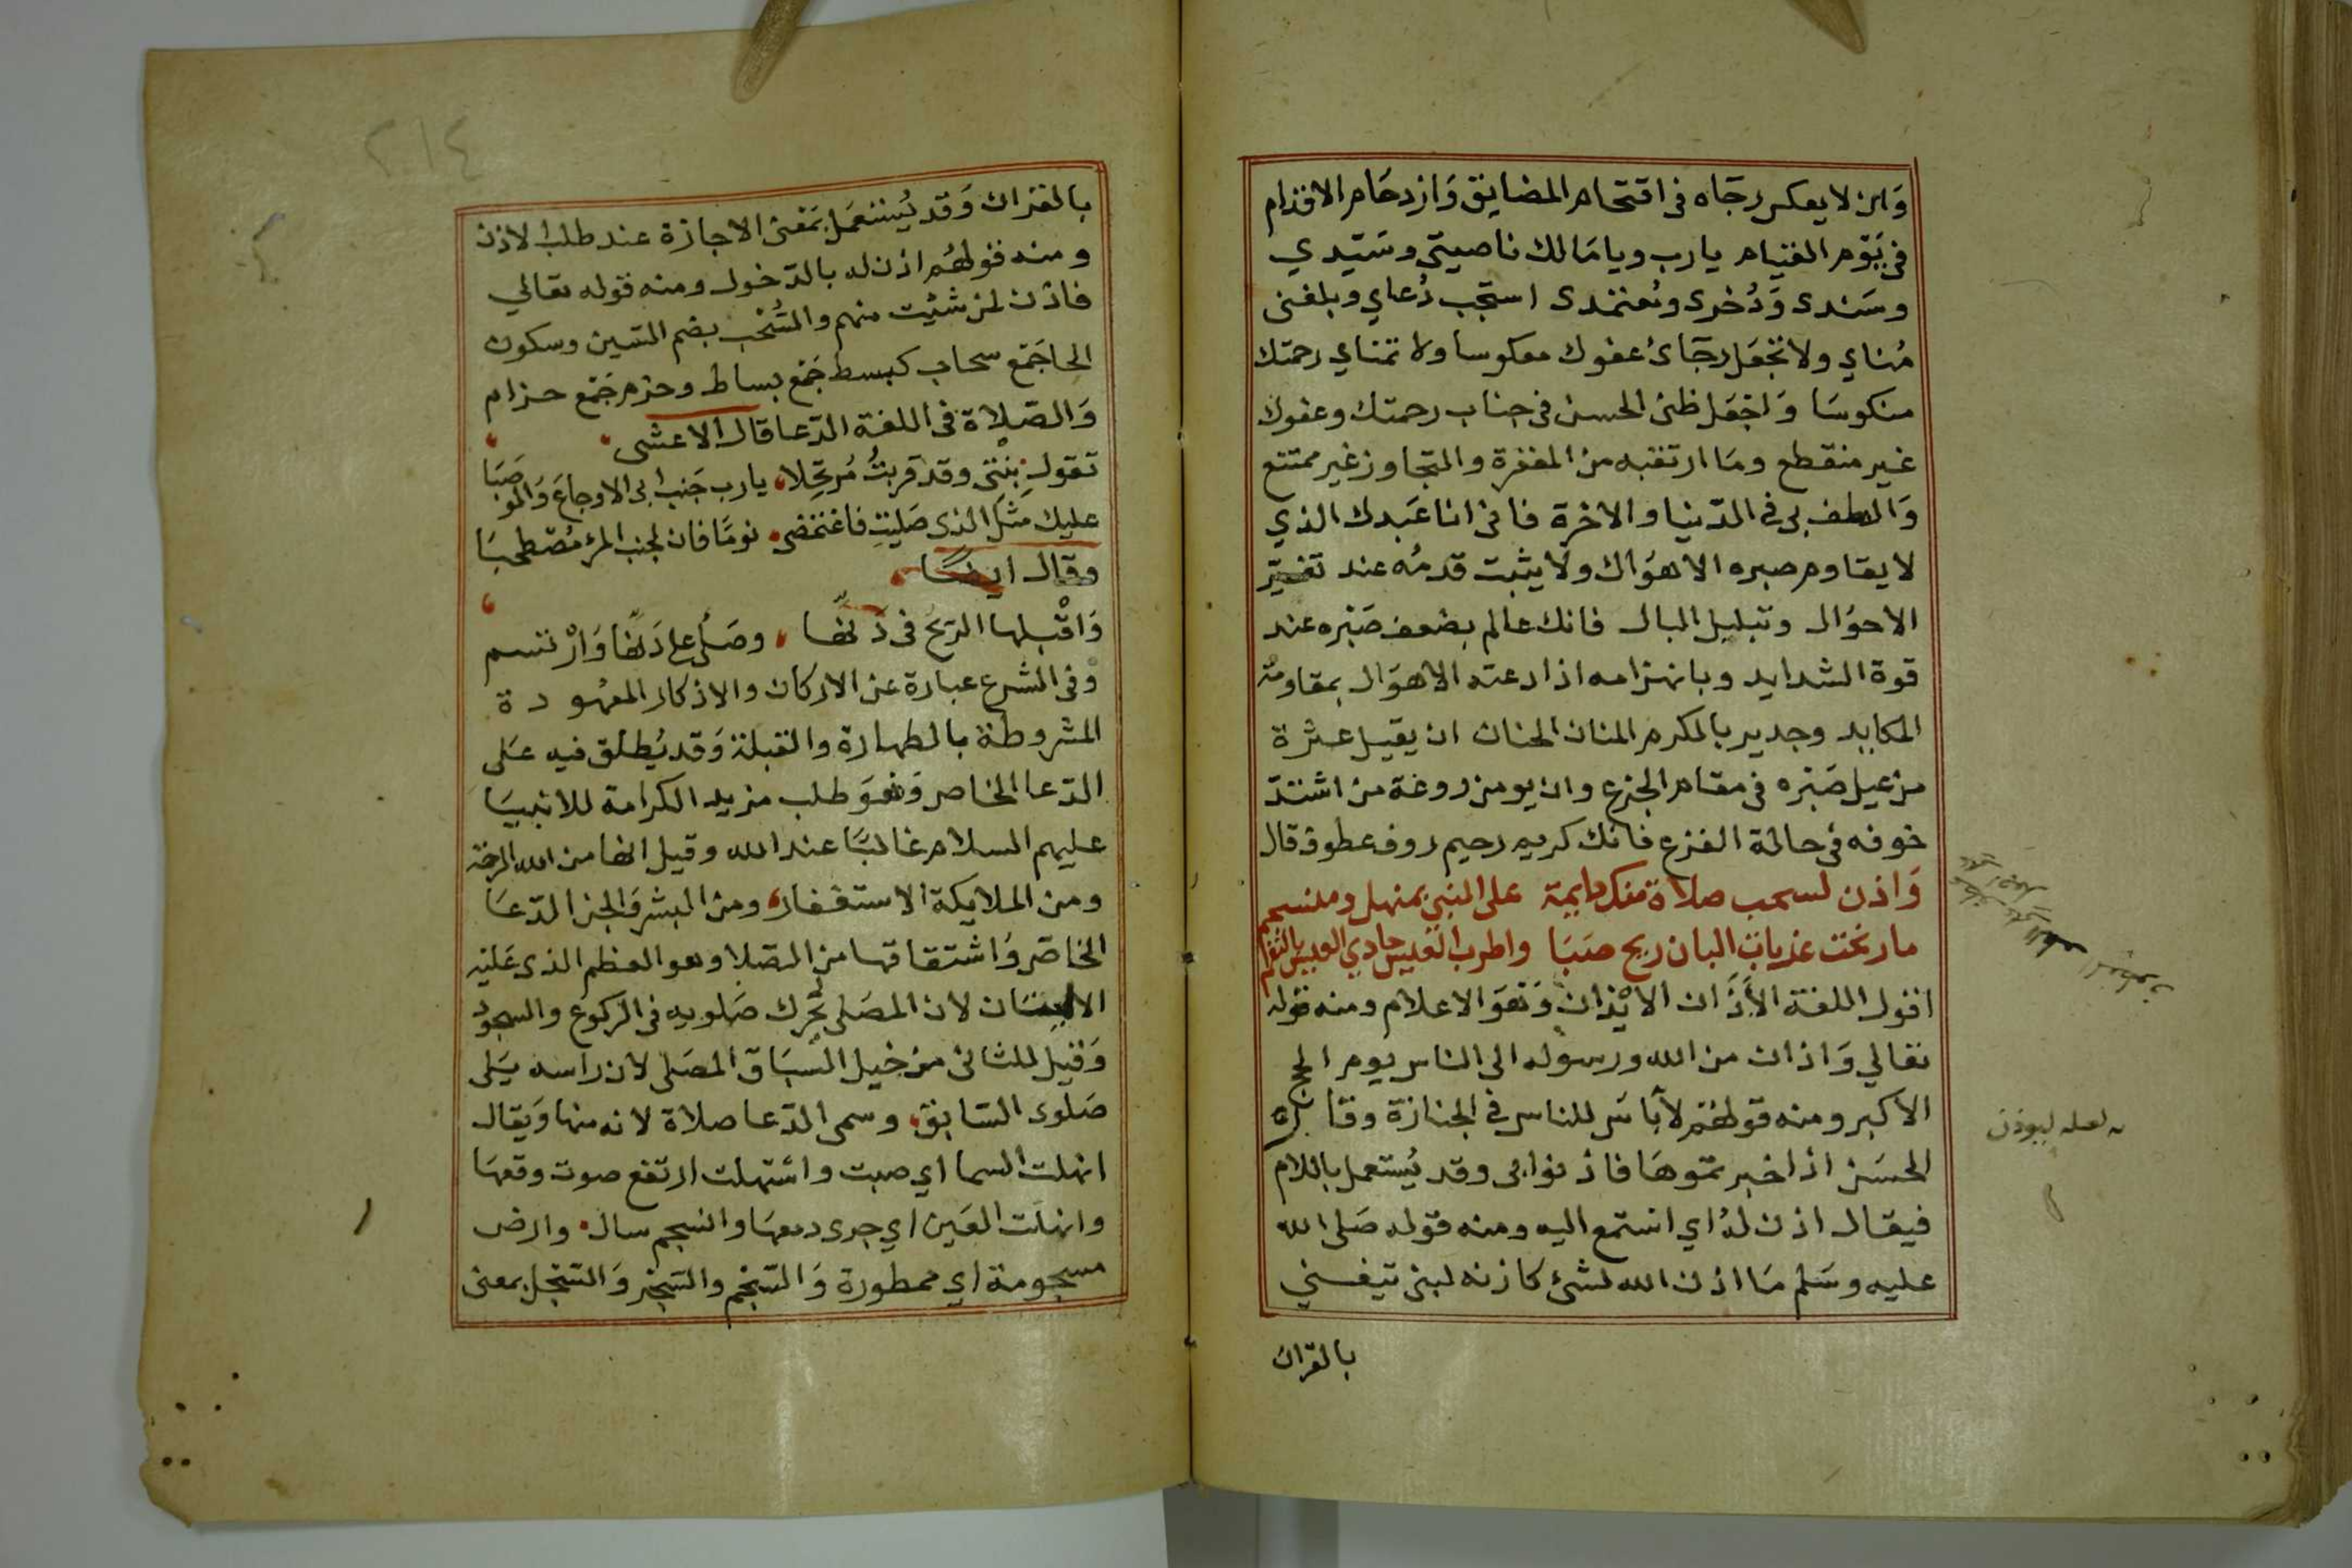 وان لا يعكس رجاه في اقتحام المضايق وازدحام الاقدام
في يوم القيام يارب ويا مالك ناصيتي وسيدي
وسندى وذخرى ومعتمدى استجب دعاي وبلغنى
مناي ولا تجعل رجائ عفوك معكوسا ولا تمناي رحمتك
منكوسا واجعل ظنى الحسن في جناب رحمتك وعفوك
غير منقطع وما ارتقبه من المغفرة والتجاوز غير ممتنع
والطف بى في الدنيا والاخرة فانى انا عبدك الذي
لا يقاوم صبره الاهوال ولا يثبت قدمه عند تغير
الاحوال وتبلبل البال فانك عالم بضعف صبره عند
قوة الشدايد وبانهزامه اذا دعته الاهوال بمقاومة
المكايد وجدير بالكرم المنان الحنان ان يقيل عثرة
من عيل صبره في مقام الجزع وان يومن روعة من اشتد
خوفه في حالة الفزع فانك كريم رحيم روف عطوف قال
واذن لسحب صلاة منك دايمة على النبي بمنهل ومنسجم
مارنحت عذبات البان ريح صبا واطرب العيس حادي العيس بالنغم
اقول اللغة الأذان الايذان وهو الاعلام ومنه قوله
تعالي واذان من الله ورسوله الى الناس يوم الحج
الاكبر ومنه قولهم لا باس للناس في الجنازة وقال
الحسن اذا اخبرتموها فاذنوابى وقد يستعمل باللام
فيقال اذن له اي استمع اليه ومنه قوله صلى الله
عليه وسلم ما اذن الله لشئ كاذنه لبنى تيغنني
بالقران
لعله ليوذن
٢١٤
بالقران وقد يستعمل بمعنى الاجازة عند طلب الاذن
ومنه قولهم اذن له بالدخول ومنه قوله تعالي
فاذن لمن شئت منهم والسحب بضم السين وسكون
الحا جمع سحاب كبسط جمع بساط وحزم جمع حزام
والصلاة في اللغة الدعا قال الاعشى
تقول بنتى وقد قربت مرتحلا يارب جنب ابى الاوجاع والوصبا
عليك مثل الذى صليت فاغتمضى نوما فان لجنب المرء مضطجعا
وقال ايضا
واقبلها الريح في دنها وصلى على دنها وارتسم
وفي الشرع عبارة عن الاركان والاذكار المعهودة
المشروطة بالطهارة والقبلة وقد يطلق فيه على
الدعا الخاص وهو طلب مزيد الكرامة للانبيا
عليهم السلام غالبا عند الله وقيل انها من الله الرحمة
ومن الملايكة الاستغفار ومن البشر والجن الدعا
الخاص واشتقاقها من الصلا وهو العظم الذى عليه
لان المصلى يحرك صلويه في الركوع والسجود
وقيل للثانى من خيل السباق المصلى لان راسه يلى
صلوى السابق وسمى الدعا صلاة لانه منها ويقال
انهلت السما اي صبت واستهلت ارتفع صوت وقعها
وانهلت العين اي جرى دمعها وانسجم سال وارض
مسجومة اي ممطورة والسجم والسجن والسجل بمعنى